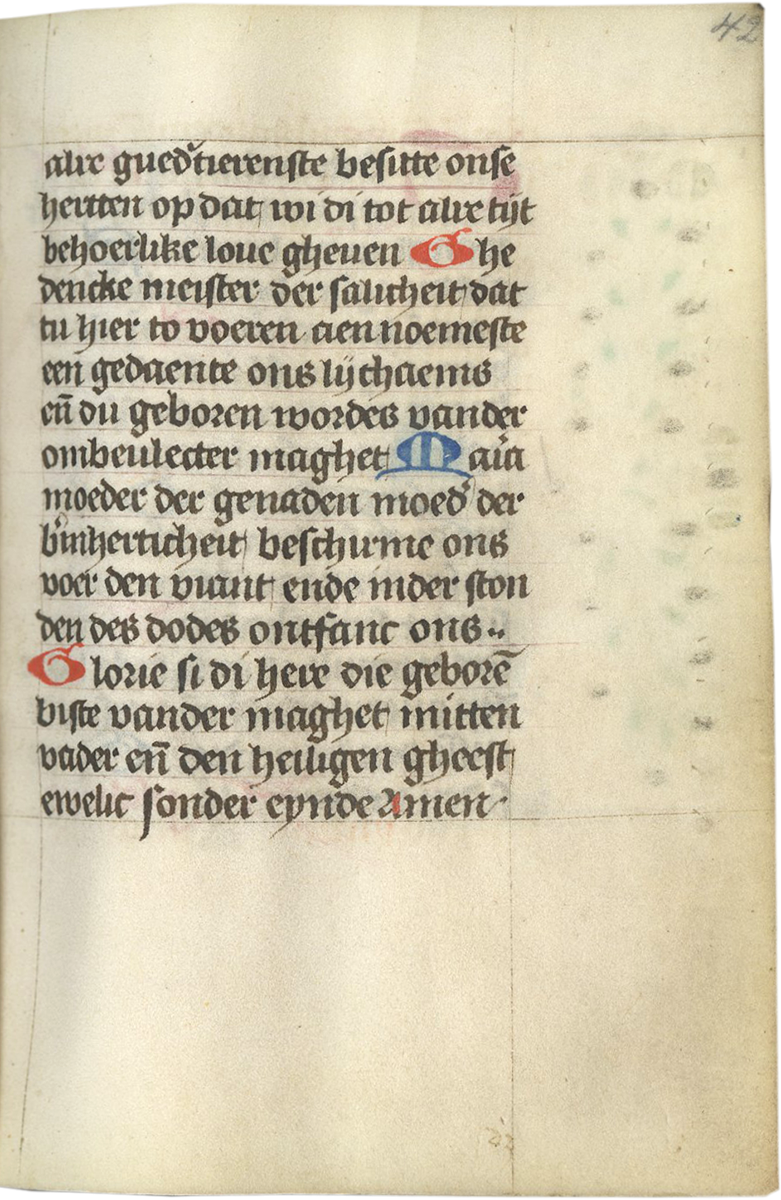 42
alre gued'tierenste besitte onse
hertten op dat wi di tot alre tijt
behoerlike loue gheuen Ghe
dencke meister der salicheit dat
tu hier to voeren aen noemeste
een gedaente ons lijchaems
eñ du geboren wordes vander
ombeulecter maghet Maria
moeder der genaden moed' der
b'mherticheit beschirme ons
voer den viant ende inder ston
den des dodes ontfanc ons
Glorie si di here die geborē
biste vander maghet mitten
vader eñ den heiligen gheest
ewelic sonder eynde Amen